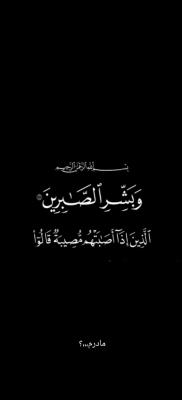 بسم الله الرحمن الرحيم
وَبَشِّرِ ٱلصَّٰبِرِينَ
ٱلَّذِينَ إِذَآ أَصَٰبَتْهُم مُّصِيبَةٌ قَالُوٓا۟
مادرم...؟